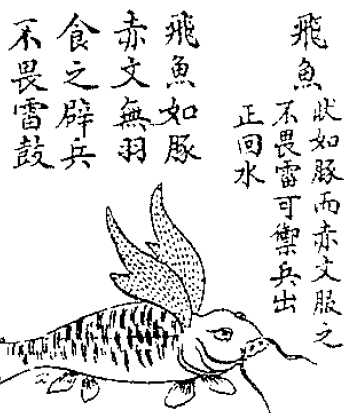 飛魚
狀如豚而赤文服之
不畏雷可禦兵出
正回水
飛魚如豚
赤文無羽
食之辟兵
不畏雷鼓